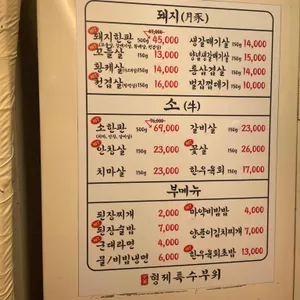 돼지(月豕)
49,000
돼지한판 500g 45,000 생갈매기살 150g 14,000
꼬들살 150g 13,000 양념갈매기살 150g 15,000
황제살 150g 14,000 통삼겹살 150g 14,000
천겹살 150g 16,000 벌집껍데기 150g 10,000
소(牛)
76,000
소한판 500g 69,000 갈비살 150g 23,000
안창살 150g 23,000 꽃살 150g 26,000
치마살 150g 23,000 한우육회 150g 17,000
부메뉴
된장찌개 2,000 마약비빔밥 4,000
된장술밥 7,000 양푼이김치찌개 7,000
군대라면 4,000 한우육회초밥 13,000
물/비빔냉면 6,000
형제특수부위